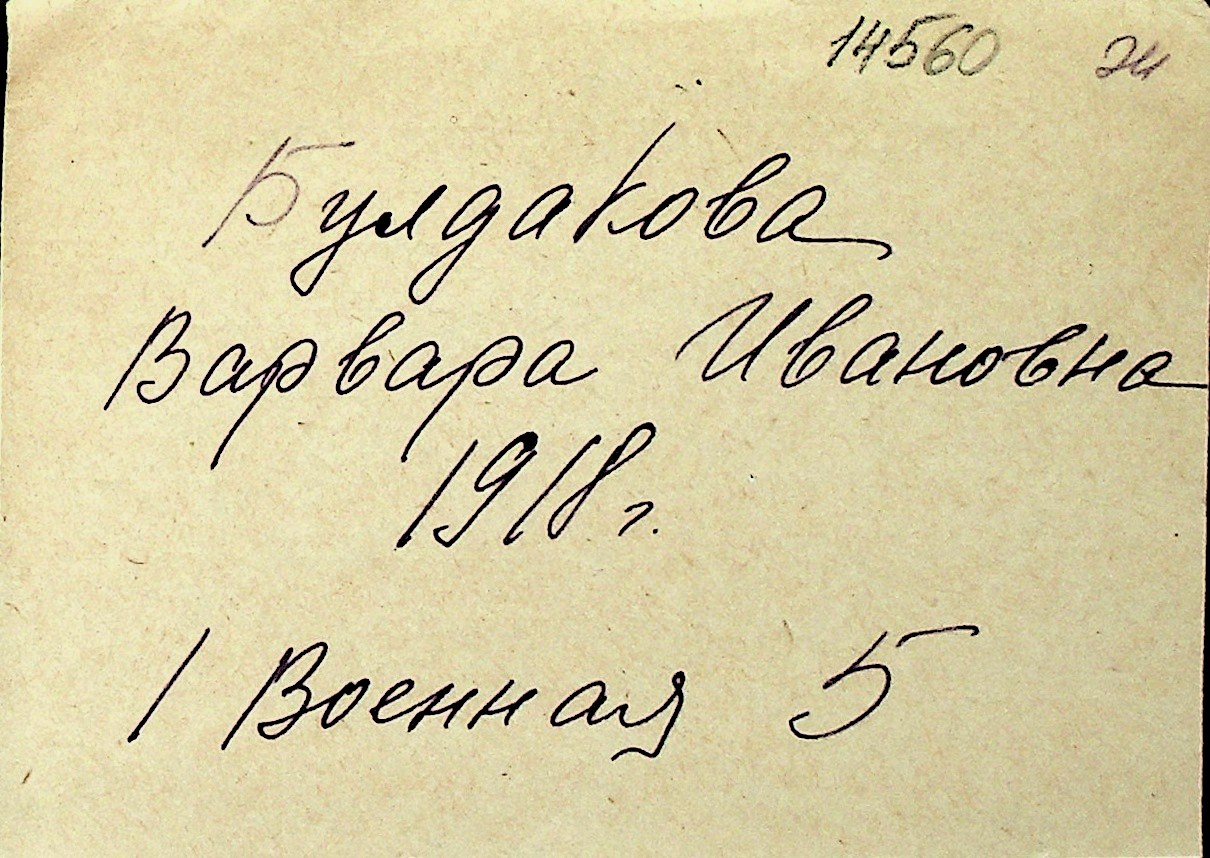 14560
Булдакова
Варвара Ивановна
1918 г.
1 Военная 5